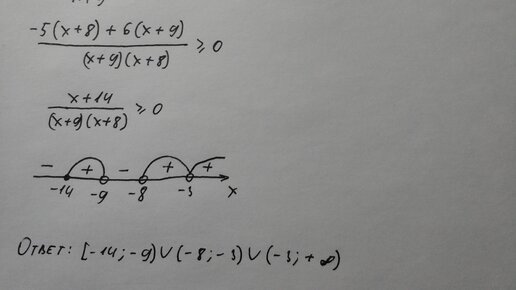 -5(x+8)+6(x+9)
(x+9)(x+8) ≥ 0
x+14
(x+9)(x+8) ≥ 0
- + - + +
-14 -9 -8 -3 x
Ответ: [-14; -9) ∪ (-8; -3) ∪ (-3; +∞)